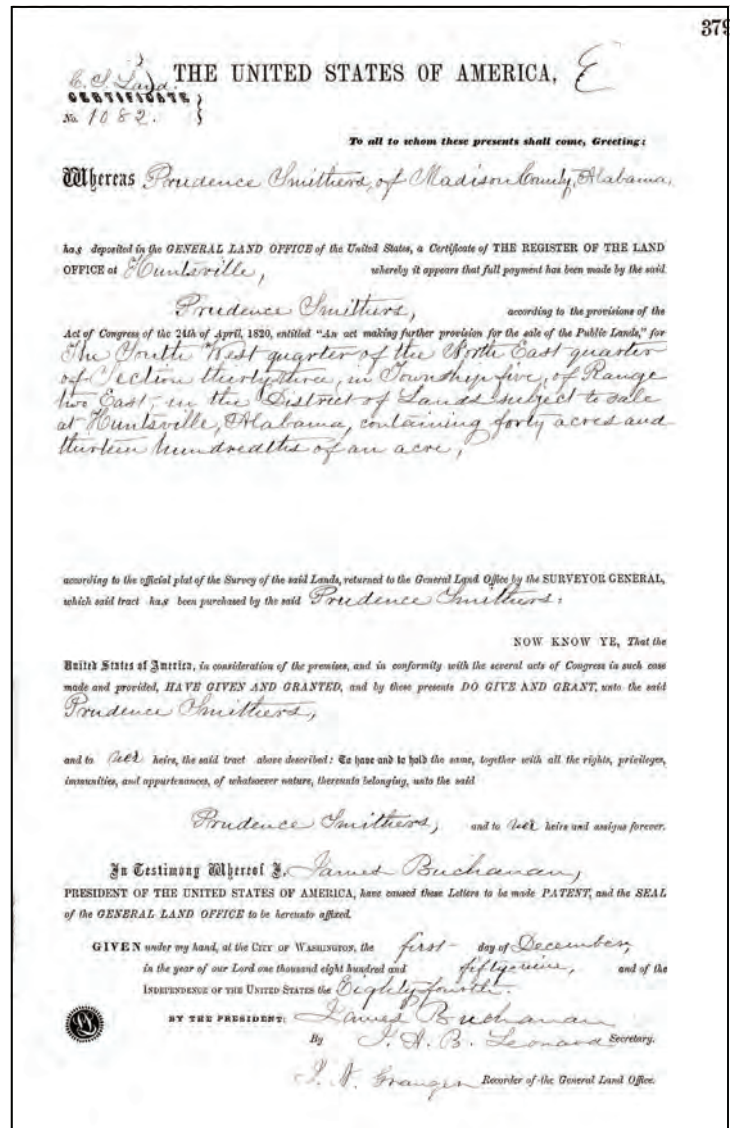 379
C. S. Land. THE UNITED STATES OF AMERICA, E
CERTIFICATE
No. 1082.
To all to whom these presents shall come, Greeting:
Whereas Prudence Smithers, of Madison County, Alabama,
has deposited in the GENERAL LAND OFFICE of the United States, a Certificate of THE REGISTER OF THE LAND
OFFICE at Huntsville, whereby it appears that full payment has been made by the said
Prudence Smithers, according to the provisions of the
Act of Congress of the 24th of April, 1820, entitled "An act making further provision for the sale of the Public Lands," for
The South West quarter of the North East quarter
of Section thirty three, in Township five, of Range
two East, in the District of Lands subject to sale
at Huntsville, Alabama, containing forty acres and
thirteen hundredths of an acre,
according to the official plat of the Survey of the said Lands, returned to the General Land Office by the SURVEYOR GENERAL,
which said tract has been purchased by the said Prudence Smithers:
NOW KNOW YE, That the
United States of America, in consideration of the premises, and in conformity with the several acts of Congress in such case
made and provided, HAVE GIVEN AND GRANTED, and by these presents DO GIVE AND GRANT, unto the said
Prudence Smithers,
and to her heirs, the said tract above described: To have and to hold the same, together with all the rights, privileges,
immunities, and appurtenances, of whatsoever nature, thereunto belonging, unto the said
Prudence Smithers, and to her heirs and assigns forever.
In Testimony Whereof I, James Buchanan,
PRESIDENT OF THE UNITED STATES OF AMERICA, have caused these Letters to be made PATENT, and the SEAL
of the GENERAL LAND OFFICE to be hereunto affixed.
GIVEN under my hand, at the CITY OF WASHINGTON, the first day of December,
in the year of our Lord one thousand eight hundred and fifty nine, and of the
INDEPENDENCE OF THE UNITED STATES the Eighty fourth.
BY THE PRESIDENT: James Buchanan
By J. A. B. Leonard Secretary.
J. N. Granger Recorder of the General Land Office.